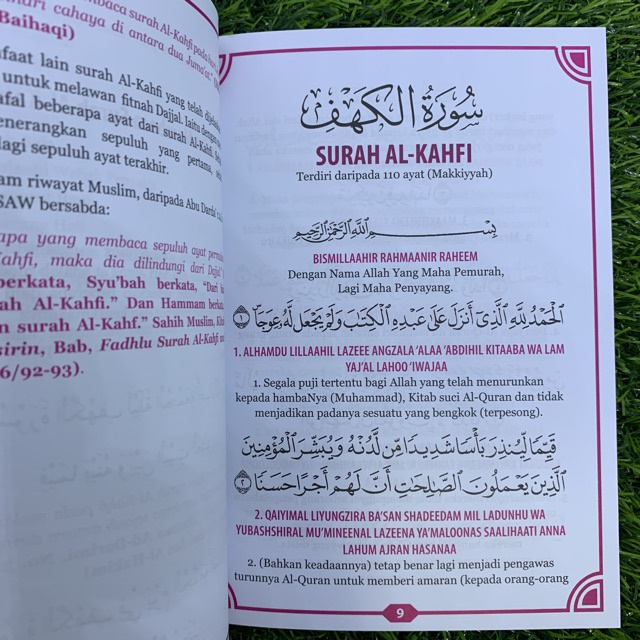 membaca surah Al-Kahfi pada
hari cahaya di antara dua Jumaat."
Baihaqi)
faat lain surah Al-Kahfi yang telah
untuk melawan fitnah Dajjal. Iaitu dengan
afal beberapa ayat dari surah Al-Kahfi
enerangkan sepuluh yang pertama,
lagi sepuluh ayat terakhir.
am riwayat Muslim, daripada Abu Darda'
SAW bersabda:
apa yang membaca sepuluh ayat
Kahfi, maka dia dilindungi dari Dajjal
berkata, Syu'bah berkata, "Dari
ah Al-Kahfi." Dan Hammam berkata
n surah Al-Kahf." Sahih Muslim,
sirin, Bab, Fadhlu Surah Al-Kahfi
6/92-93).
سُورَةُ الْكَهْفِ
SURAH AL-KAHFI
Terdiri daripada 110 ayat (Makkiyyah)
بِسْمِ اللَّهِ الرَّحْمَٰنِ الرَّحِيمِ
BISMILLAAHIR RAHMAANIR RAHEEM
Dengan Nama Allah Yang Maha Pemurah,
Lagi Maha Penyayang.
الْحَمْدُ لِلَّهِ الَّذِي أَنزَلَ عَلَىٰ عَبْدِهِ الْكِتَابَ وَلَمْ يَجْعَل لَّهُ عِوَجًا ۜ ١
1. ALHAMDU LILLAAHIL LAZEEE ANGZALA 'ALAA 'ABDIHIL KITAABA WA LAM
YAJ'AL LAHOO 'IWAJAA
1. Segala puji tertentu bagi Allah yang telah menurunkan
kepada hambaNya (Muhammad), Kitab suci Al-Quran dan tidak
menjadikan padanya sesuatu yang bengkok (terpesong).
قَيِّمًا لِّيُنذِرَ بَأْسًا شَدِيدًا مِّن لَّدُنْهُ وَيُبَشِّرَ الْمُؤْمِنِينَ
الَّذِينَ يَعْمَلُونَ الصَّالِحَاتِ أَنَّ لَهُمْ أَجْرًا حَسَنًا ٢
2. QAIYIMAL LIYUNGZIRA BA'SAN SHADEEDAM MIL LADUNHU WA
YUBASHSHIRAL MU'MINEENAL LAZEENA YA'MALOONAS SAALIHAATI ANNA
LAHUM AJRAN HASANAA
2. (Bahkan keadaannya) tetap benar lagi menjadi pengawas
turunnya Al-Quran untuk memberi amaran (kepada orang-orang
9